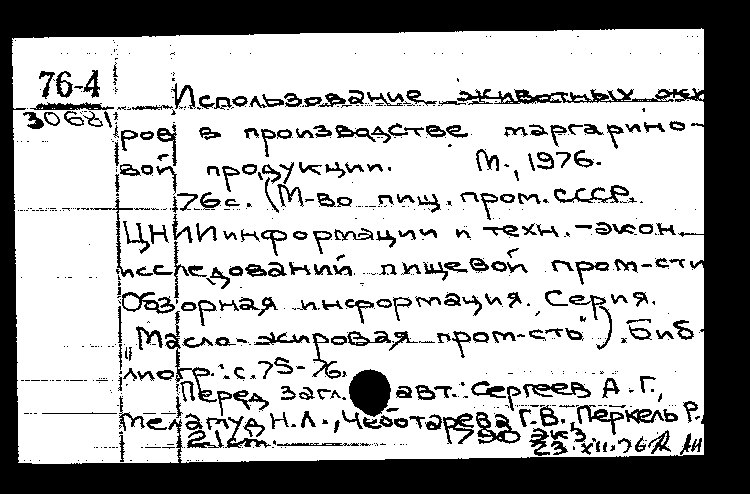 76-4
30681
Использование животных жи
ров в производстве маргарино-
вой продукции. М., 1976.
76с. (М-во пищ. пром. СССР.
ЦНИИинформации и техн.-экон.
исследований пищевой пром-сти
Обзорная информация. Серия.
"Масло-жировая пром-сть"). Биб-
лиогр.: с. 75-76.
Перед загл. авт.: Сергеев А.Г.,
Меламуд Н.Л., Чеботарева Г.В., Перкель Р.
21см. 1790 экз
23.XII.76